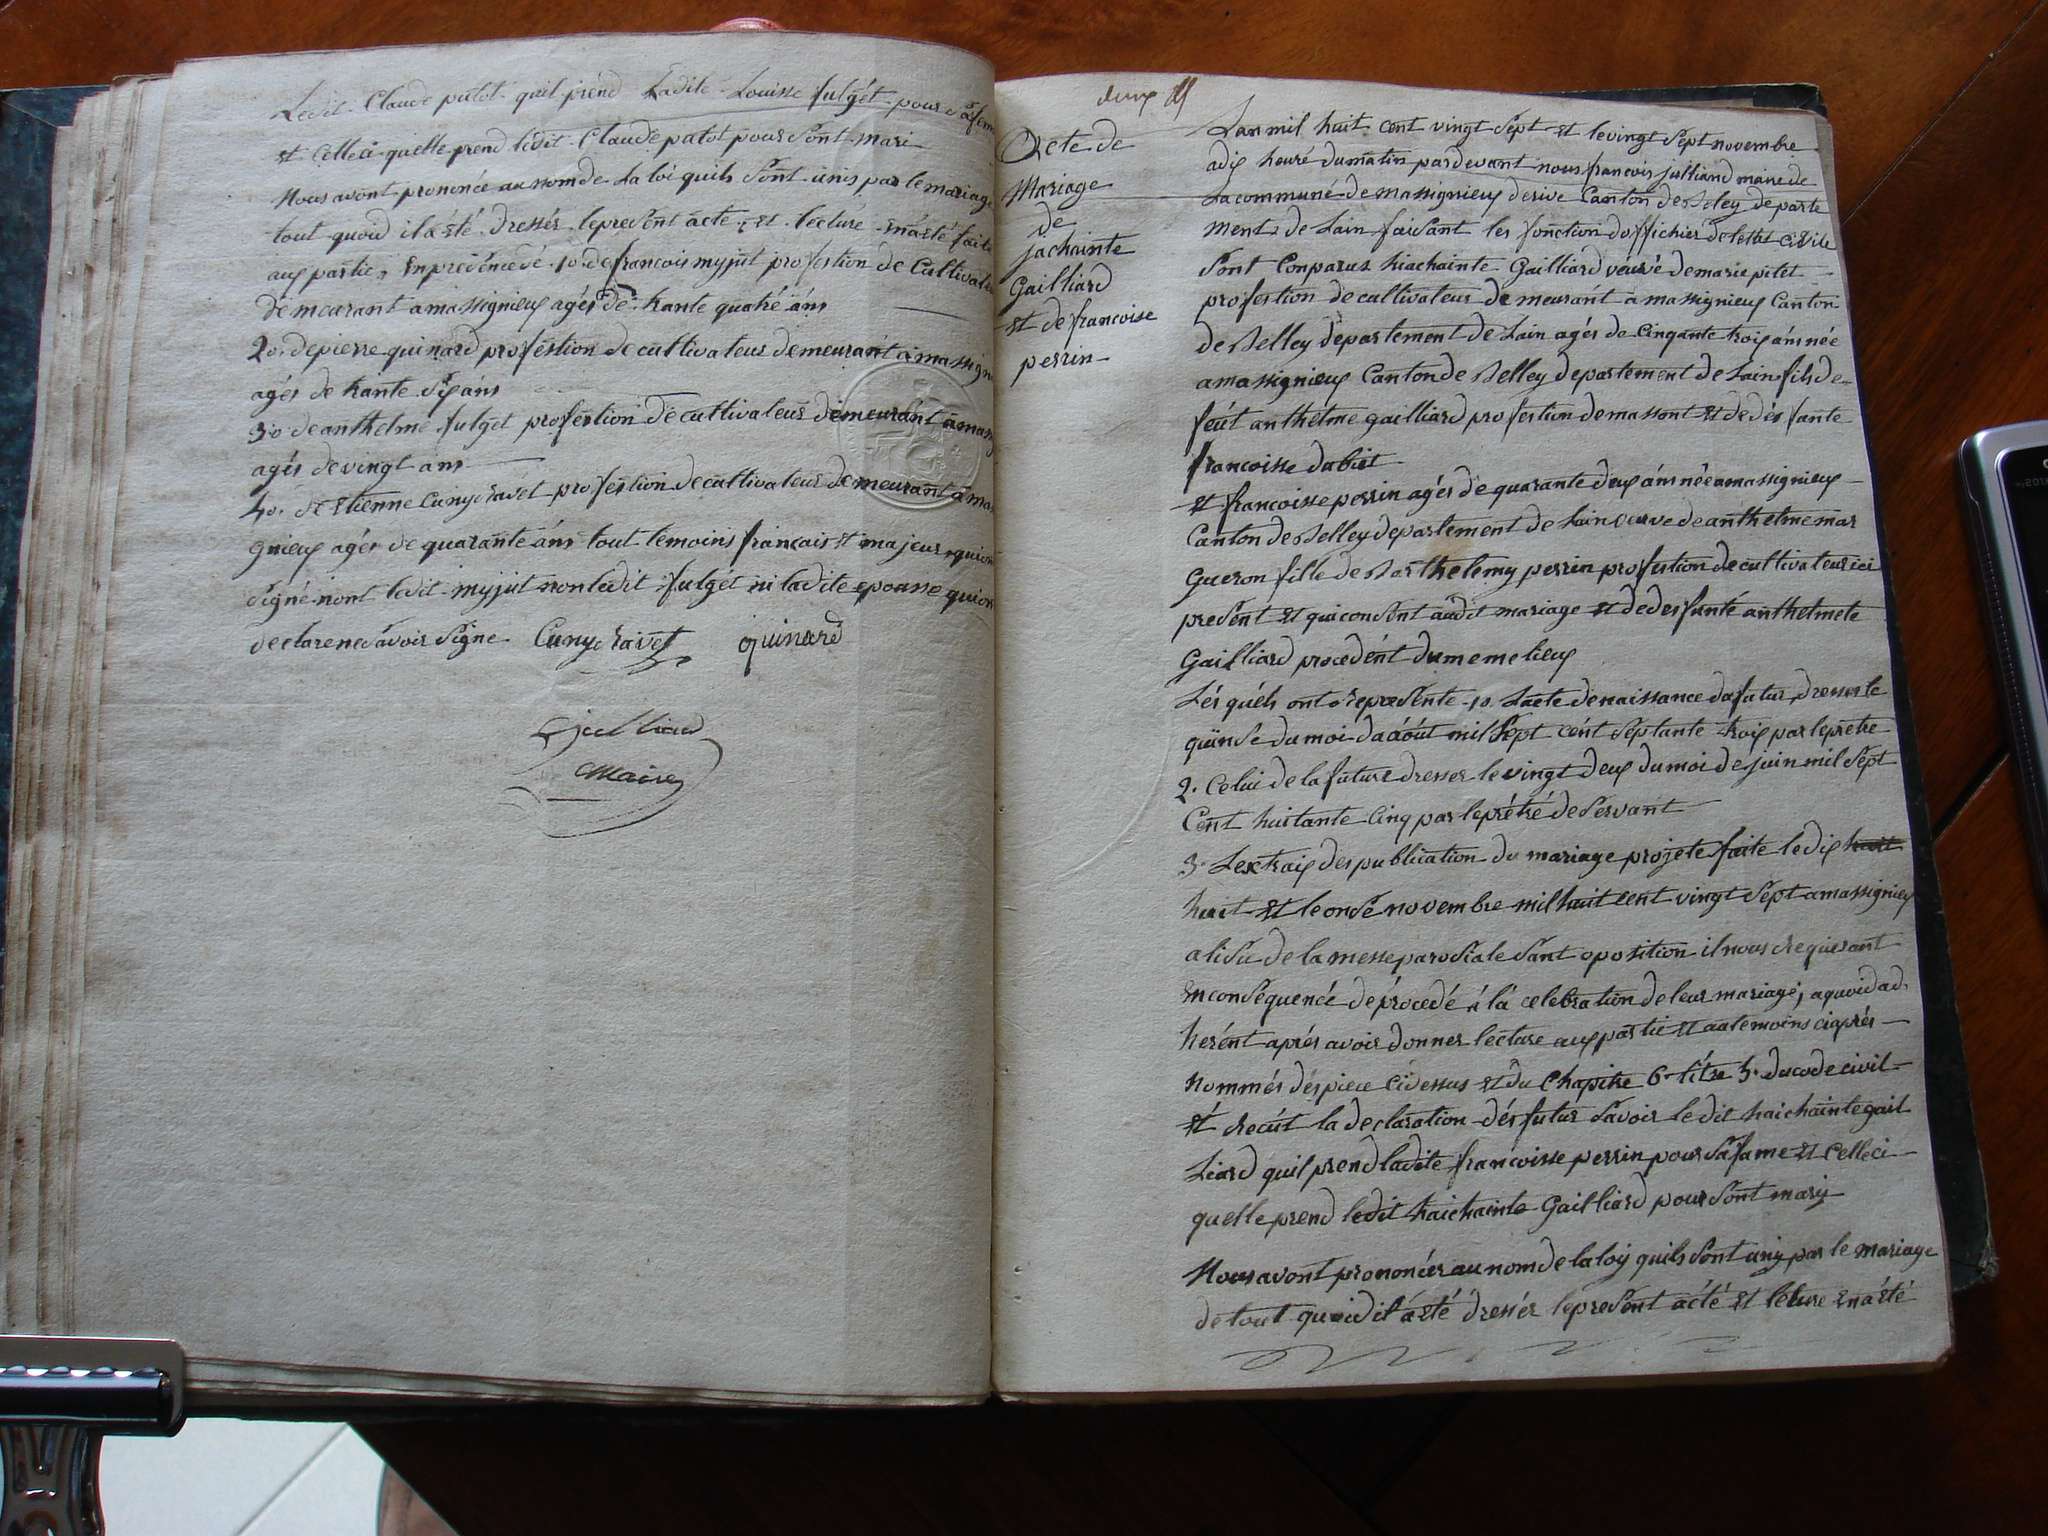 Ledit Claude patot quil prend Ladite Louisse fulget pour safem
et Celleci quelle prend ledit Claude patot pour Sont mari
Nous avont prononcée au nom de La loi quils Sont unis par le mariage
tout quoid il a été dressér lepresent acte, et lecture enaété faite
aux partie, Enpresencede 1o. de francois myjut profestion de Cultivateur
demeurant amassignieux agér de trante quatre ans
2o. depierre quinard profestion de cultivateur demeurant amassign
agér de trante six ans
3o deanthelme fulget profestion de cultivateur demeurant amass
agér devingt ans
4o. de Etienne Cunyt ravet profestion decultivateur demeurant amas
gnieux agér de quarante ans tout temoins francais et majeur quiont
Signé nont ledit myjut nonledit fulget ni ladite epousse quiont
declarenesavoir Signe Cunyt ravet quinard
julliand
Maire
deux
Acte de
Mariage
de
jachainte
Gailliard
et de francoise
perrin
Lan mil huit cent vingt Sept et levingt Sept novembre
adix heuré dumatin pardevant nous francois julliand maire de
Lacommuné de massignieux derive Canton de Beley departe
ment de Lain faisant les fonction doffichier deletat civile
Sont Conparus hiachainte Gailliard veuvé demarie pitet
profestion decultivateur demeurant amassignieux Canton
de Belley departement de Lain agér de Cinqante trois ans née
amassignieux Cantonde Belley departement de Lain fils de
feut anthelme gailliard profestion demassont et dedésfante
francoisse dabiet
et francoisse perrin agér de quarante deux ans née amassignieux
Canton de Belley departement de Lain veuve de anthelme mar
Gueron fille de Barthelemy perrin profestion de cultivateur ici
present et quiconsent audit mariage et dedesfunté anthelmete
Gailliard procedént dumeme lieux
Lér quels ont represente 1o Lacte denaissance dufutur dresserle
quinse dumoi daaóut mil Sept cént Septante trois par leprétre
2. Celui de la future dresser le vingt deux dumoi de juin mil Sept
Cent huitante Cinq par leprétré deServant
3. Lextraix despublication du mariage projeté faite ledix huit
huit et leonse novembre mil huit cent vingt Sept amassignieux
alisu de la messe parosiale Sant oposition il nous drequierant
Enconséquencé deprocedé a la celebration deleur mariage, aquoid ad
herént aprér avoir donner lecture aux partie et autemoins ciaprér
nommér déspiece cidessus et du Chapitre 6. titre 5. ducode civil
et drecut la declaration dés futur Savoir le dit haichainte gail
Liard quil prend ladite francoisse perrin pour Safame et Celleci
quelle prend ledit haichainte Gailliard pour Sont mary
Nous avont prononcér au nom de la loy quils Sont uniy par le mariage
de tout quoid il a été dressér lepresent acté et lecture enaété